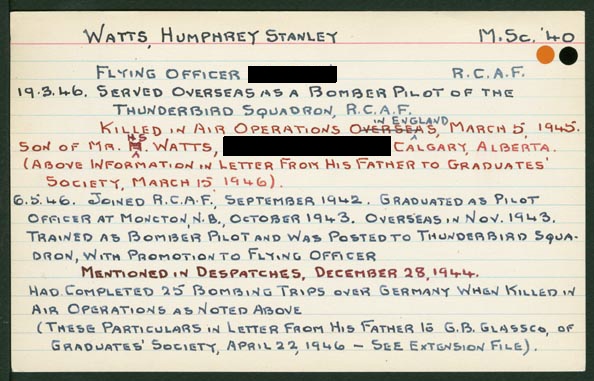 WATTS, HUMPHREY STANLEY M.Sc. '40
FLYING OFFICER R.C.A.F.
19.3.46. SERVED OVERSEAS AS A BOMBER PILOT OF THE
THUNDERBIRD SQUADRON, R.C.A.F.
IN ENGLAND
KILLED IN AIR OPERATIONS OVERSEAS, MARCH 5, 1945.
HS
SON OF MR. H. WATTS, CALGARY, ALBERTA.
(ABOVE INFORMATION IN LETTER FROM HIS FATHER TO GRADUATES'
SOCIETY, MARCH 15, 1946).
6.5.46. JOINED R.C.A.F., SEPTEMBER 1942. GRADUATED AS PILOT
OFFICER AT MONCTON, N.B., OCTOBER 1943. OVERSEAS IN NOV. 1943.
TRAINED AS BOMBER PILOT AND WAS POSTED TO THUNDERBIRD SQUA-
DRON, WITH PROMOTION TO FLYING OFFICER
MENTIONED IN DESPATCHES, DECEMBER 28, 1944.
HAD COMPLETED 25 BOMBING TRIPS OVER GERMANY WHEN KILLED IN
AIR OPERATIONS AS NOTED ABOVE
(THESE PARTICULARS IN LETTER FROM HIS FATHER TO G.B. GLASSCO, OF
GRADUATES' SOCIETY, APRIL 22, 1946 - SEE EXTENSION FILE).